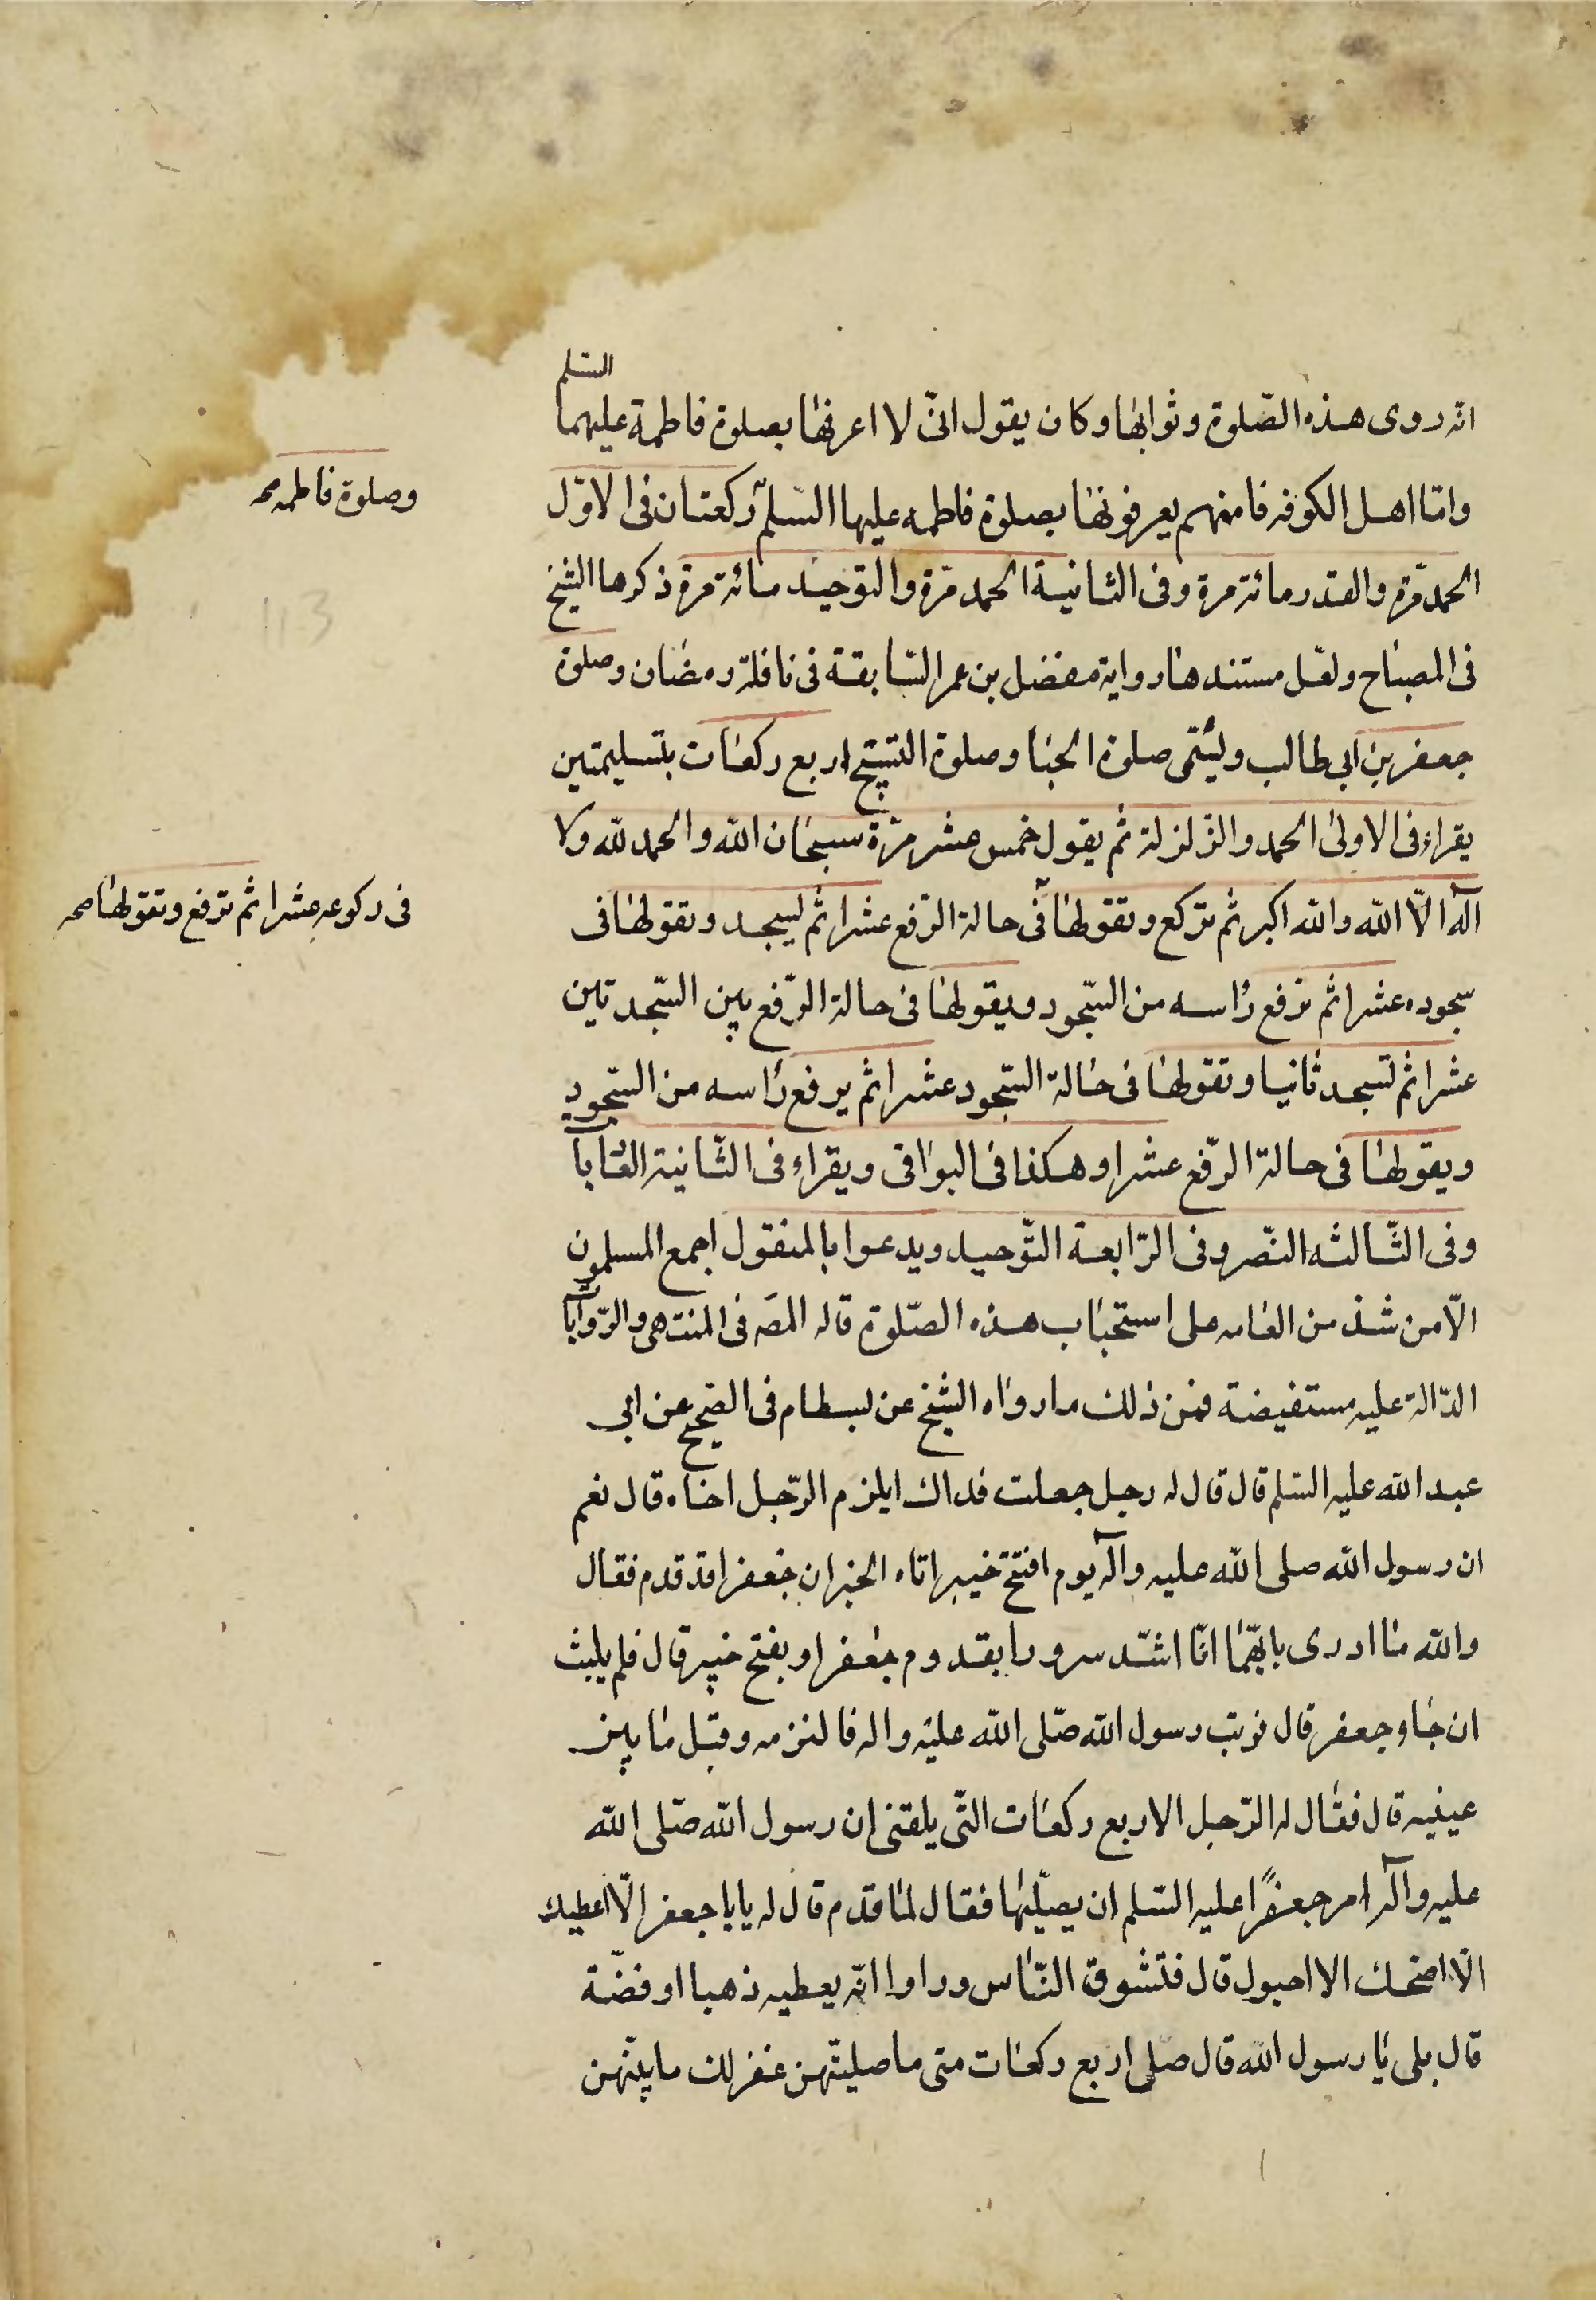 السلم
انه روى هذه الصّلوة وثوابها وكان يقول انّى لا اعرفها بصلوة فاطمة عليهما
وامّا اهل الكوفه فانهم يعرفونها بصلوة فاطمه عليها السّلم ركعتان فى الاوّل
وصلوة فاطمه صح
الحمد مرّة والقدر مائة مرة وفى الثانية الحمد مرّة والتوحيد مائة مرة ذكرها الشيخ
فى المصباح ولعّل مستندها رواية مفضل بن عمر السّابقة فى نافلة رمضان وصلوة
جعفر بن ابى طالب ويسّمى صلوة الحبا وصلوة التسبيح اربع ركعات بتسليمتين
يقراء فى الاولى الحمد والزّلزلة ثم يقول خمس عشر مرّة سبحان الله والحمد لله ولا
اله الّا الله والله اكبر ثم تركع وتقولها فى حالة الرّفع عشرا ثم ليسجد وتقولها فى
فى ركوعه عشرا ثم ترفع وتقولها صح
سجوده عشرا ثم ترفع راسه من السّجود ويقولها فى حالة الرّفع بين السّجدتين
عشرا ثم تسجد ثانيا وتقولها فى حالة السّجود عشرا ثم يرفع راسه من السّجود
ويقولها فى حالة الرّفع عشرا وهكذا فى البواقى ويقراء فى الثّانية العاديا
وفى الثّالثه النّصر وفى الرّابعة التّوحيد ويدعوا بالمنقول اجمع المسلمون
الّا من شذ من العامه على استحباب هذه الصّلوة قاله المصَ فى المنتهى والرّوايا
الدّالة عليه مستفيضة فمن ذلك ما رواه الشيخ عن بسطام فى الصّحيح عن ابى
عبد الله عليه السّلم قال قال له رجل جعلت فداك ايلزم الرّجل اخاه قال نعم
ان رسول الله صلى الله عليه وآله يوم افتتح خيبر اتاه الخبر ان جعفرا قد قدم فقال
والله ما ادرى بايّهما انّا اشّد سرورا بقدوم جعفر او بفتح خيبر قال فلم يلبث
ان جاء جعفر قال فوثب رسول الله صّلى الله عليه واله فالتزمه وقبل ما بين
عينيه قال فقال له الرّجل الاربع ركعات الّتى بلغنى ان رسول الله صّلى الله
عليه وآله امر جعفرًا عليه السّلم ان يصّليها فقال لما قدم قال له يا با جعفر الّا اعطيك
الّا امنحك الا احبوك قال فتشوق النّاس وراوا انّه يعطيه ذهبا او فضّة
قال بلى يا رسول الله قال صّلى اربع ركعات متى ما صليتّهن غفر لك ما بينّهن